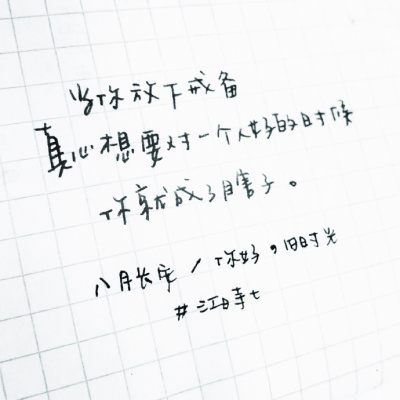 当你放下戒备
真心想要对一个人好的时候
你就成了瞎子。
八月长安 / 你好,旧时光
#